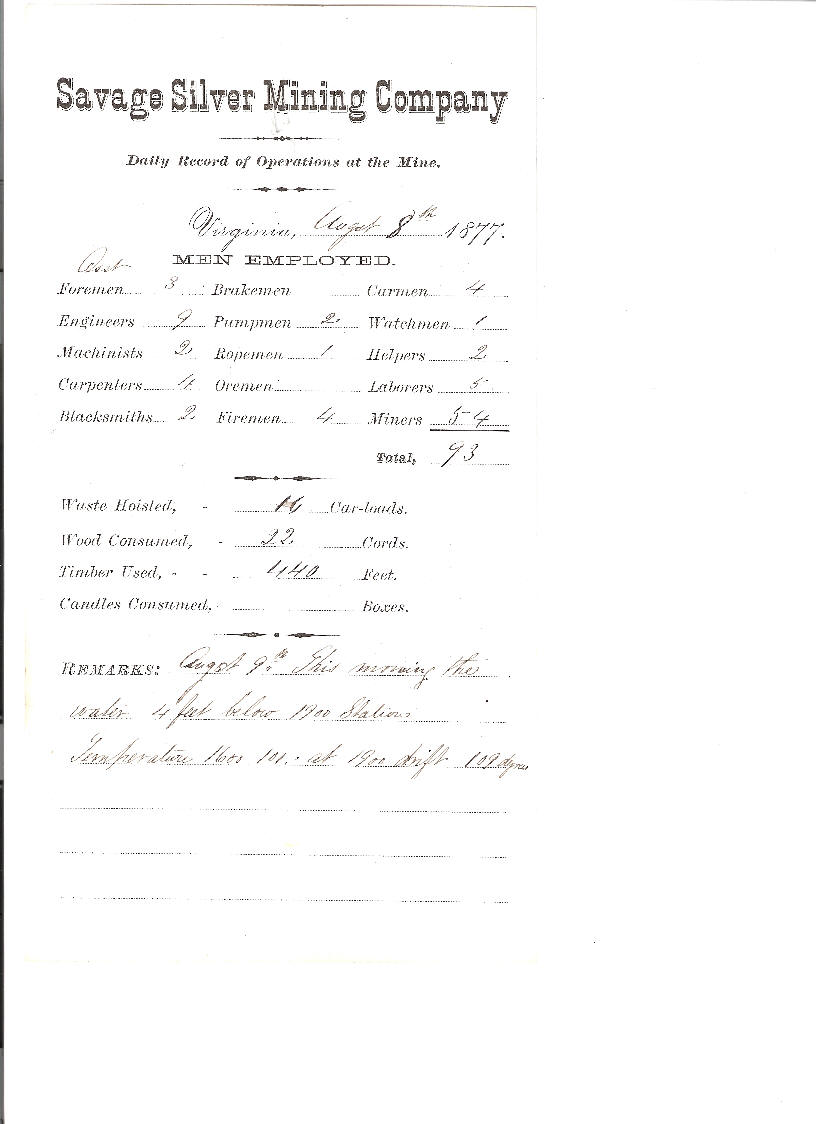 Savage Silver Mining Company
Daily Record of Operations at the Mine.
Virginia, Augst 8th 1877.
MEN EMPLOYED.
Asst
Foremen 3 Brakemen Carmen 4
Engineers 9 Pumpmen 2 Watchmen 1
Machinists 2 Ropemen 1 Helpers 2
Carpenters 4 Oremen Laborers 5
Blacksmiths 2 Firemen 4 Miners 54
Total, 93
Waste Hoisted, - 16 Car-loads.
Wood Consumed, - 22 Cords.
Timber Used, - - 440 Feet.
Candles Consumed, - Boxes.
REMARKS: Augst 9th This morning the
water 4 feet below 1900 Station
Temperature 1600 101. at 1900 drift 109